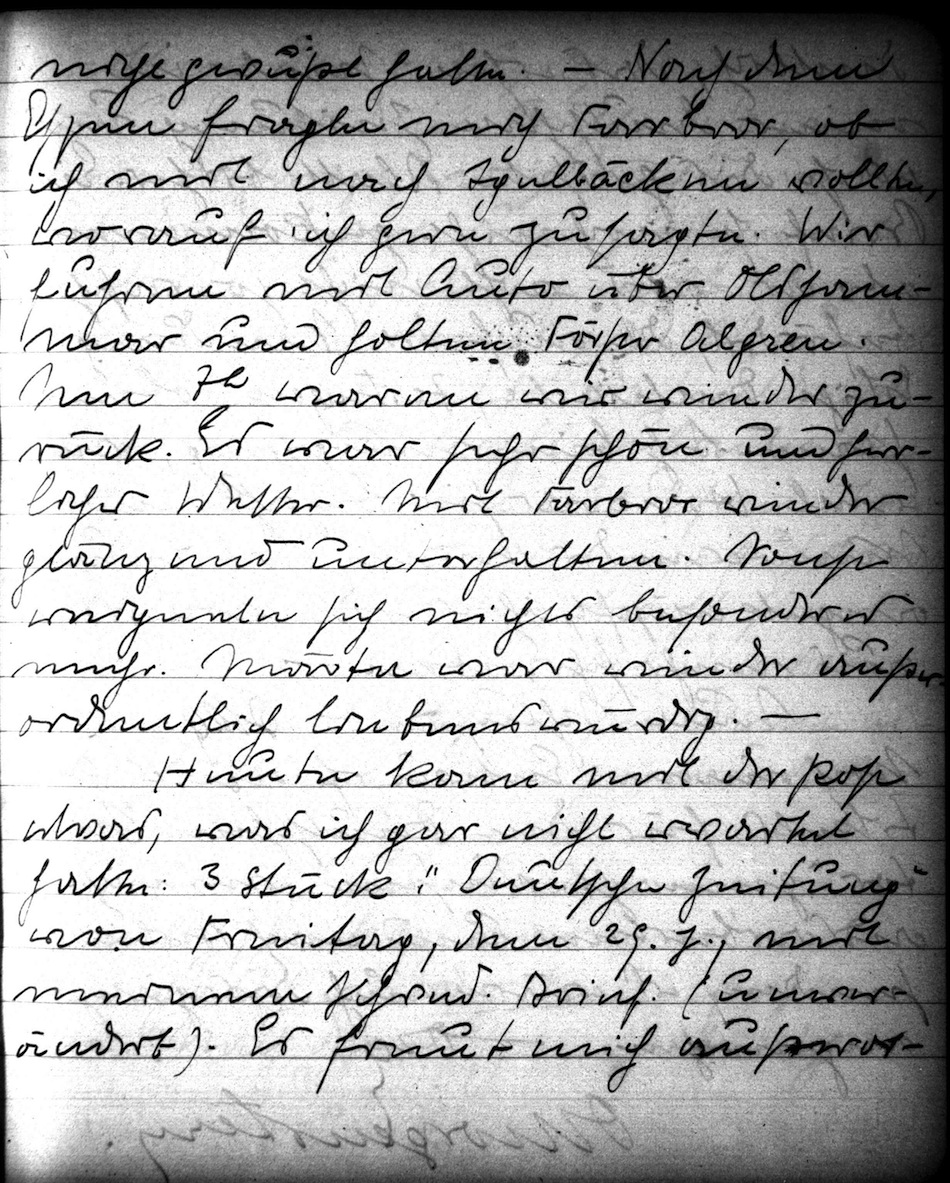 nicht gewußt hatte. – Nach dem
Essen fragte mich Farbror, ob
ich mit nach Igelbäcken wollte,
worauf ich gern zusagte. Wir
fuhren mit Auto über Olsham-
mar und holten Algren.
Um 7h waren wir wieder zu-
rück. Es war sehr schön und herr-
liches Wetter. Mit Farbror wieder
glänzend unterhalten. Sonst
ereignete sich nichts besonderes
mehr. Märta war wieder außer-
ordentlich liebenswürdig. –
Heute kam mit der Post
etwas, was ich gar nicht erwartet
hatte: 3 Stück "Deutsche Zeitung"
von Freitag, dem 29. 7., mit
meinem Schwed. Brief. (unver-
ändert). Es freut mich außeror-